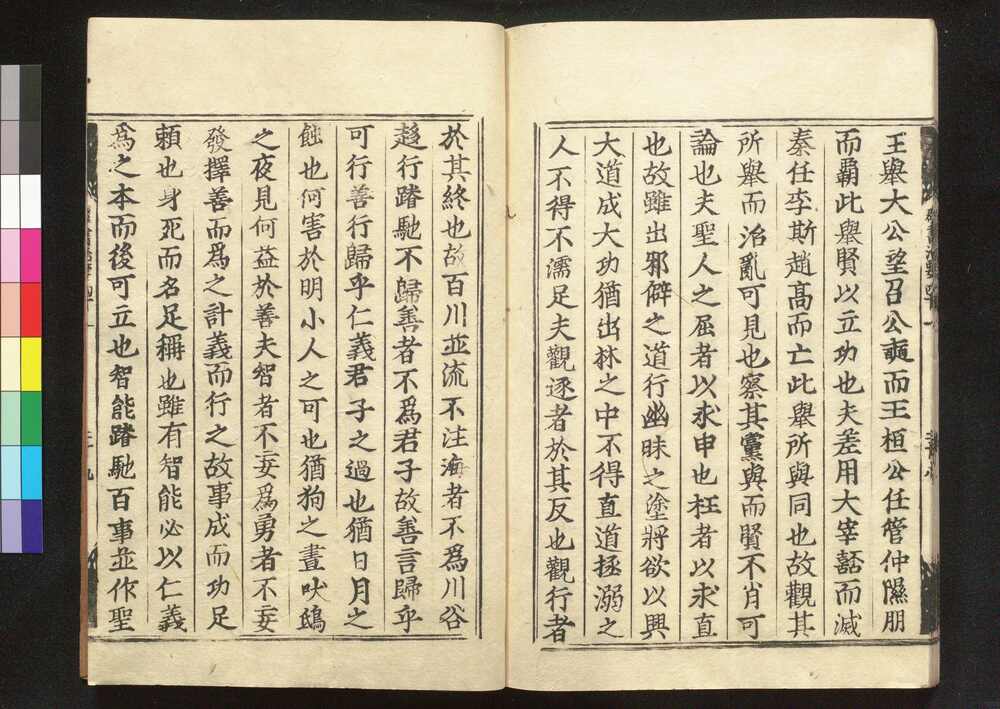 王舉大公望召公奭而王桓公任管仲隰朋
而霸此舉賢以立功也夫差用大宰嚭而滅
秦任李斯趙高而亡此舉所與同也故觀其
所舉而治亂可見也察其黨與而賢不肖可
論也夫聖人之屈者以求申也枉者以求直
也故雖出邪僻之道行幽昧之塗將欲以興
大道成大功猶出林之中不得直道拯溺之
人不得不濡足夫觀逐者於其反也觀行者
於其終也故百川並流不注海者不爲川谷
趍行踳馳不歸善者不爲君子故善言歸乎
可行善行歸乎仁義君子之過也猶日月之
蝕也何害於明小人之可也猶狗之晝吠鴟
之夜見何益於善夫智者不妄爲勇者不妄
發擇善而爲之計義而行之故事成而功足
賴也身死而名足稱也雖有智能必以仁義
爲之本而後可立也智能踳馳百事並作聖